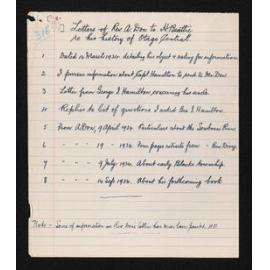 Letters of Rev A Don to H Beattie
re his history of Otago Central.
1 Dated 14 March 1932. detailing his object & asking for information
2 I possess information about Capt Hamilton to send to Mr Don.
3 Letter from George I Hamilton concerning his uncle
4 Replies to list of questions I asked Geo I. Hamilton.
5 From A Don, 9 April 1932. Particulars about the Sowburn Run
6 " " 19 - 1932 Two pages extracts from
7 " " 9 July 1932. About early Blacks township.
8 " " 14 Sep 1932. About his forthcoming book
Note - Some of information in Rev Don's letters has never been